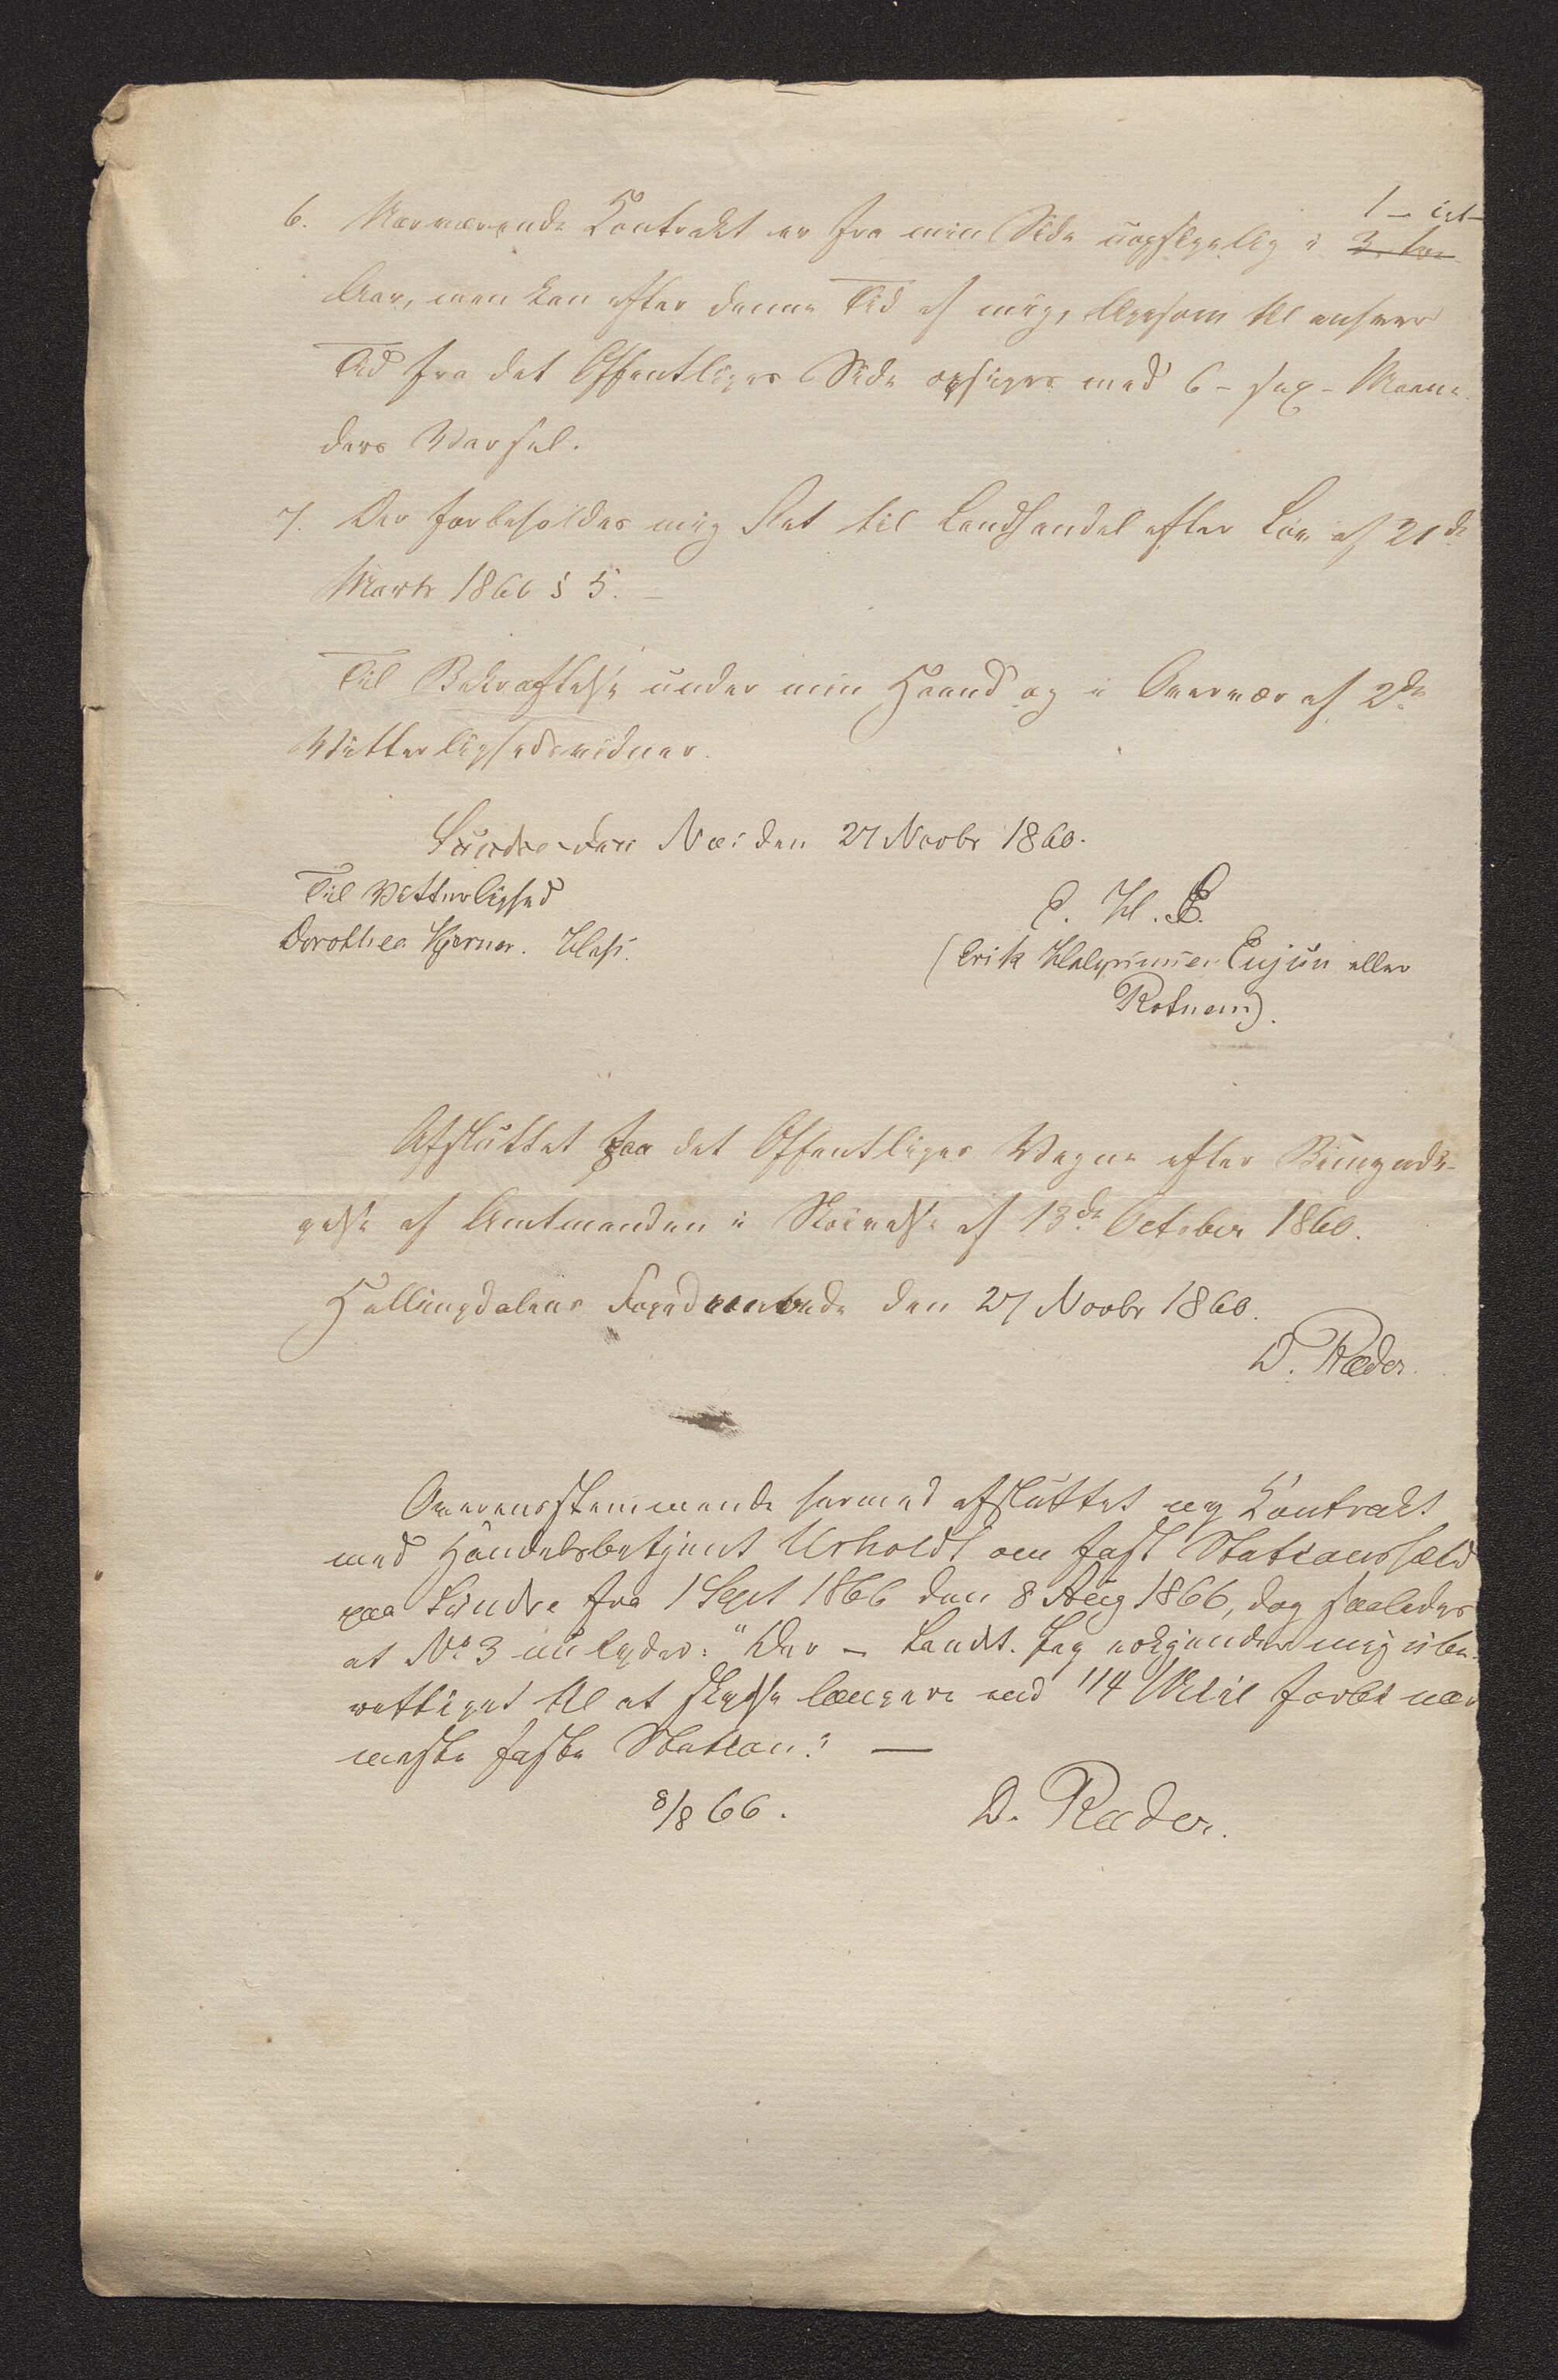 1 – et –
6. Nærværende Kontrakt er fra min Side uopsigelig i 3. tre
Aar, men kan efter denne Tid af mig, ligesom til enhver
Tid fra det Offentliges Side opsiges med 6 – sex – Maane-
ders Varsel.
7. Der forbeholdes mig Ret til Landhandel efter Lov af 21de
Marts 1860 § 5. –
Til Bekræftelse under min Haand og i Overvær af 2de
Vitterlighedsvidner.
Sundre den 27 Novbr 1860.
Til Vitterlighed
Dorothea Kjerner.
E. H. E.
(Erik eller
Rotnem).
Afsluttet paa det Offentliges Vegne efter Bemyndi-
gelse af Amtmanden i Skrivelse af 13de October 1860.
Hallingdalens Fogedembede den 27 Novbr 1860.
D. Ræder.
Overensstemmende hermed afsluttet ny Kontrakt
med Handelsbetjent Urholdt om fast Stationshold
paa Sundre fra 1 Sept 1866 den 8 Aug 1866, dog saaledes
at No 3 nu lyder: "Der – Landt. Jeg erkjender mig ube-
rettiget til at skydse længere end 1/4 Miil forbi nær-
meste faste Station." —
8/8 66.
D. Ræder.